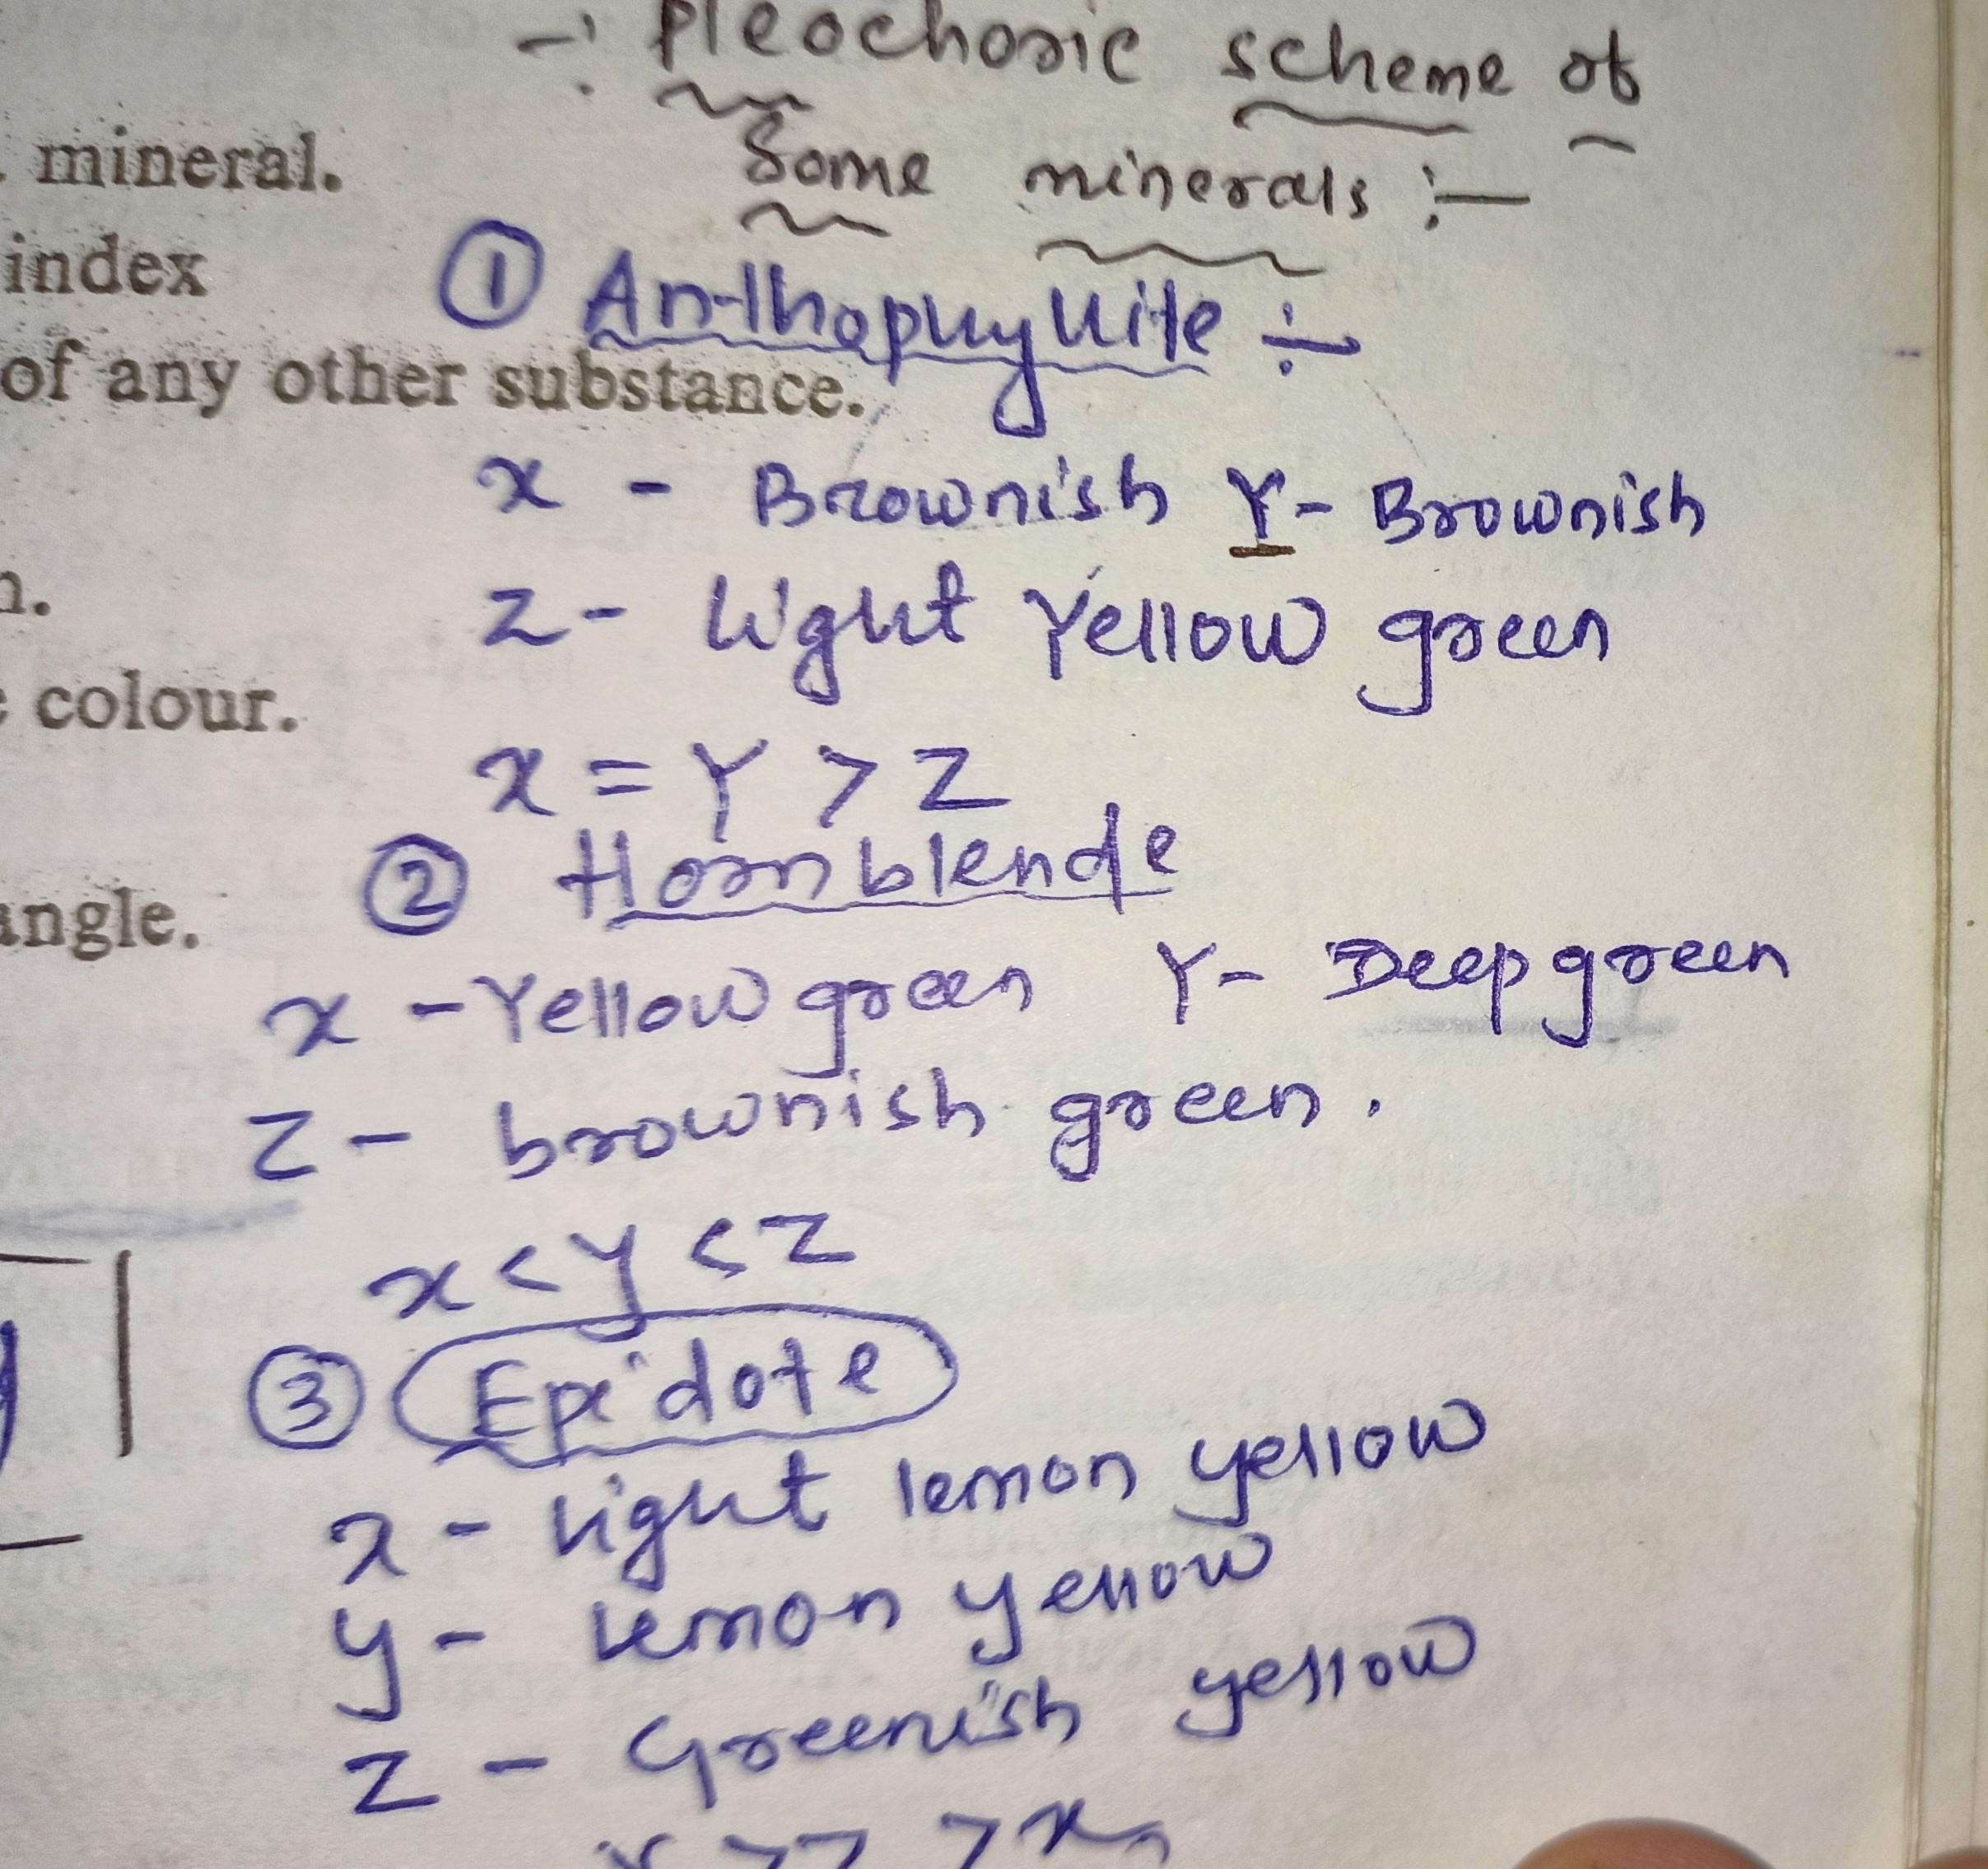 -: Pleochoric scheme of
Some minerals :-
mineral.
index
① Anthophyllite :-
of any other substance.
x - Brownish Y- Brownish
z - Light Yellow green
colour.
x = Y > Z
② Hornblende
angle.
x - Yellow green Y- Deep green
Z - brownish green.
x < y < z
③ Epidote
x - Light lemon yellow
y - lemon yellow
Z - Greenish yellow